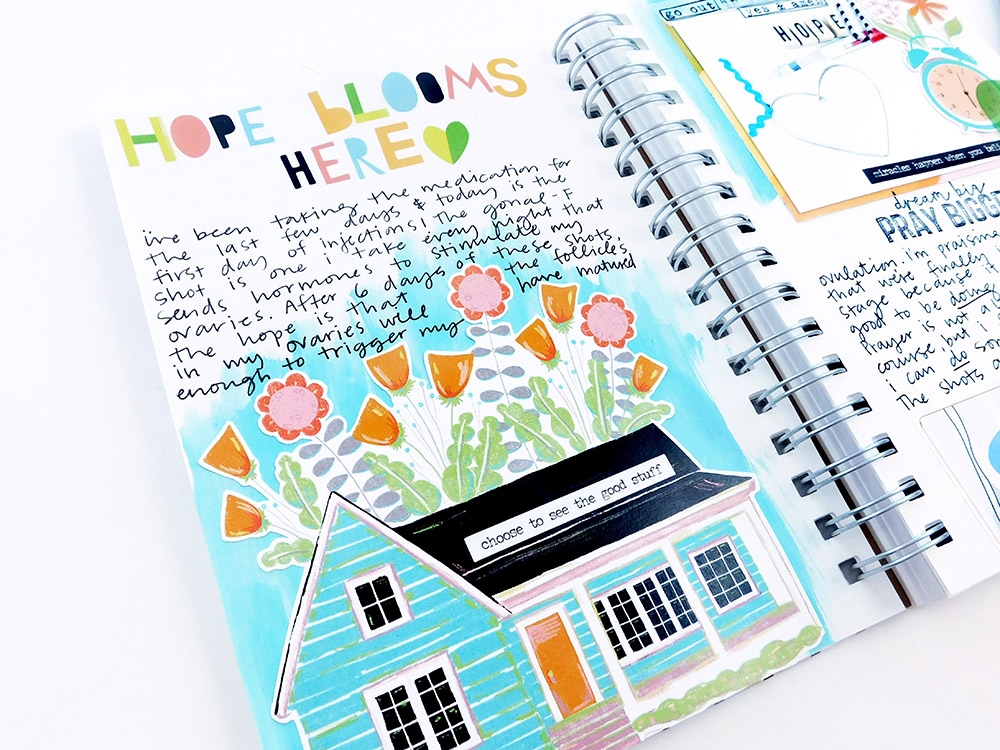 HOPE bLOOMS
HERE
i've been taking the medication for
the last few days & today is the
first day of injections! The gonal-F
shot is one i take every night that
sends hormones to stimulate my
ovaries. After 6 days of these shots
the hope is that the follicles
in my ovaries will have matured
enough to trigger my
choose to see the good stuff
go out
yes & amen
HOPE
miracles happen when you
dream big
PRAY BIGGE
ovulation. I'm praising
that we're finally
stage because it
good to be doing
Prayer is not a
course, but i
i can do so
The shots